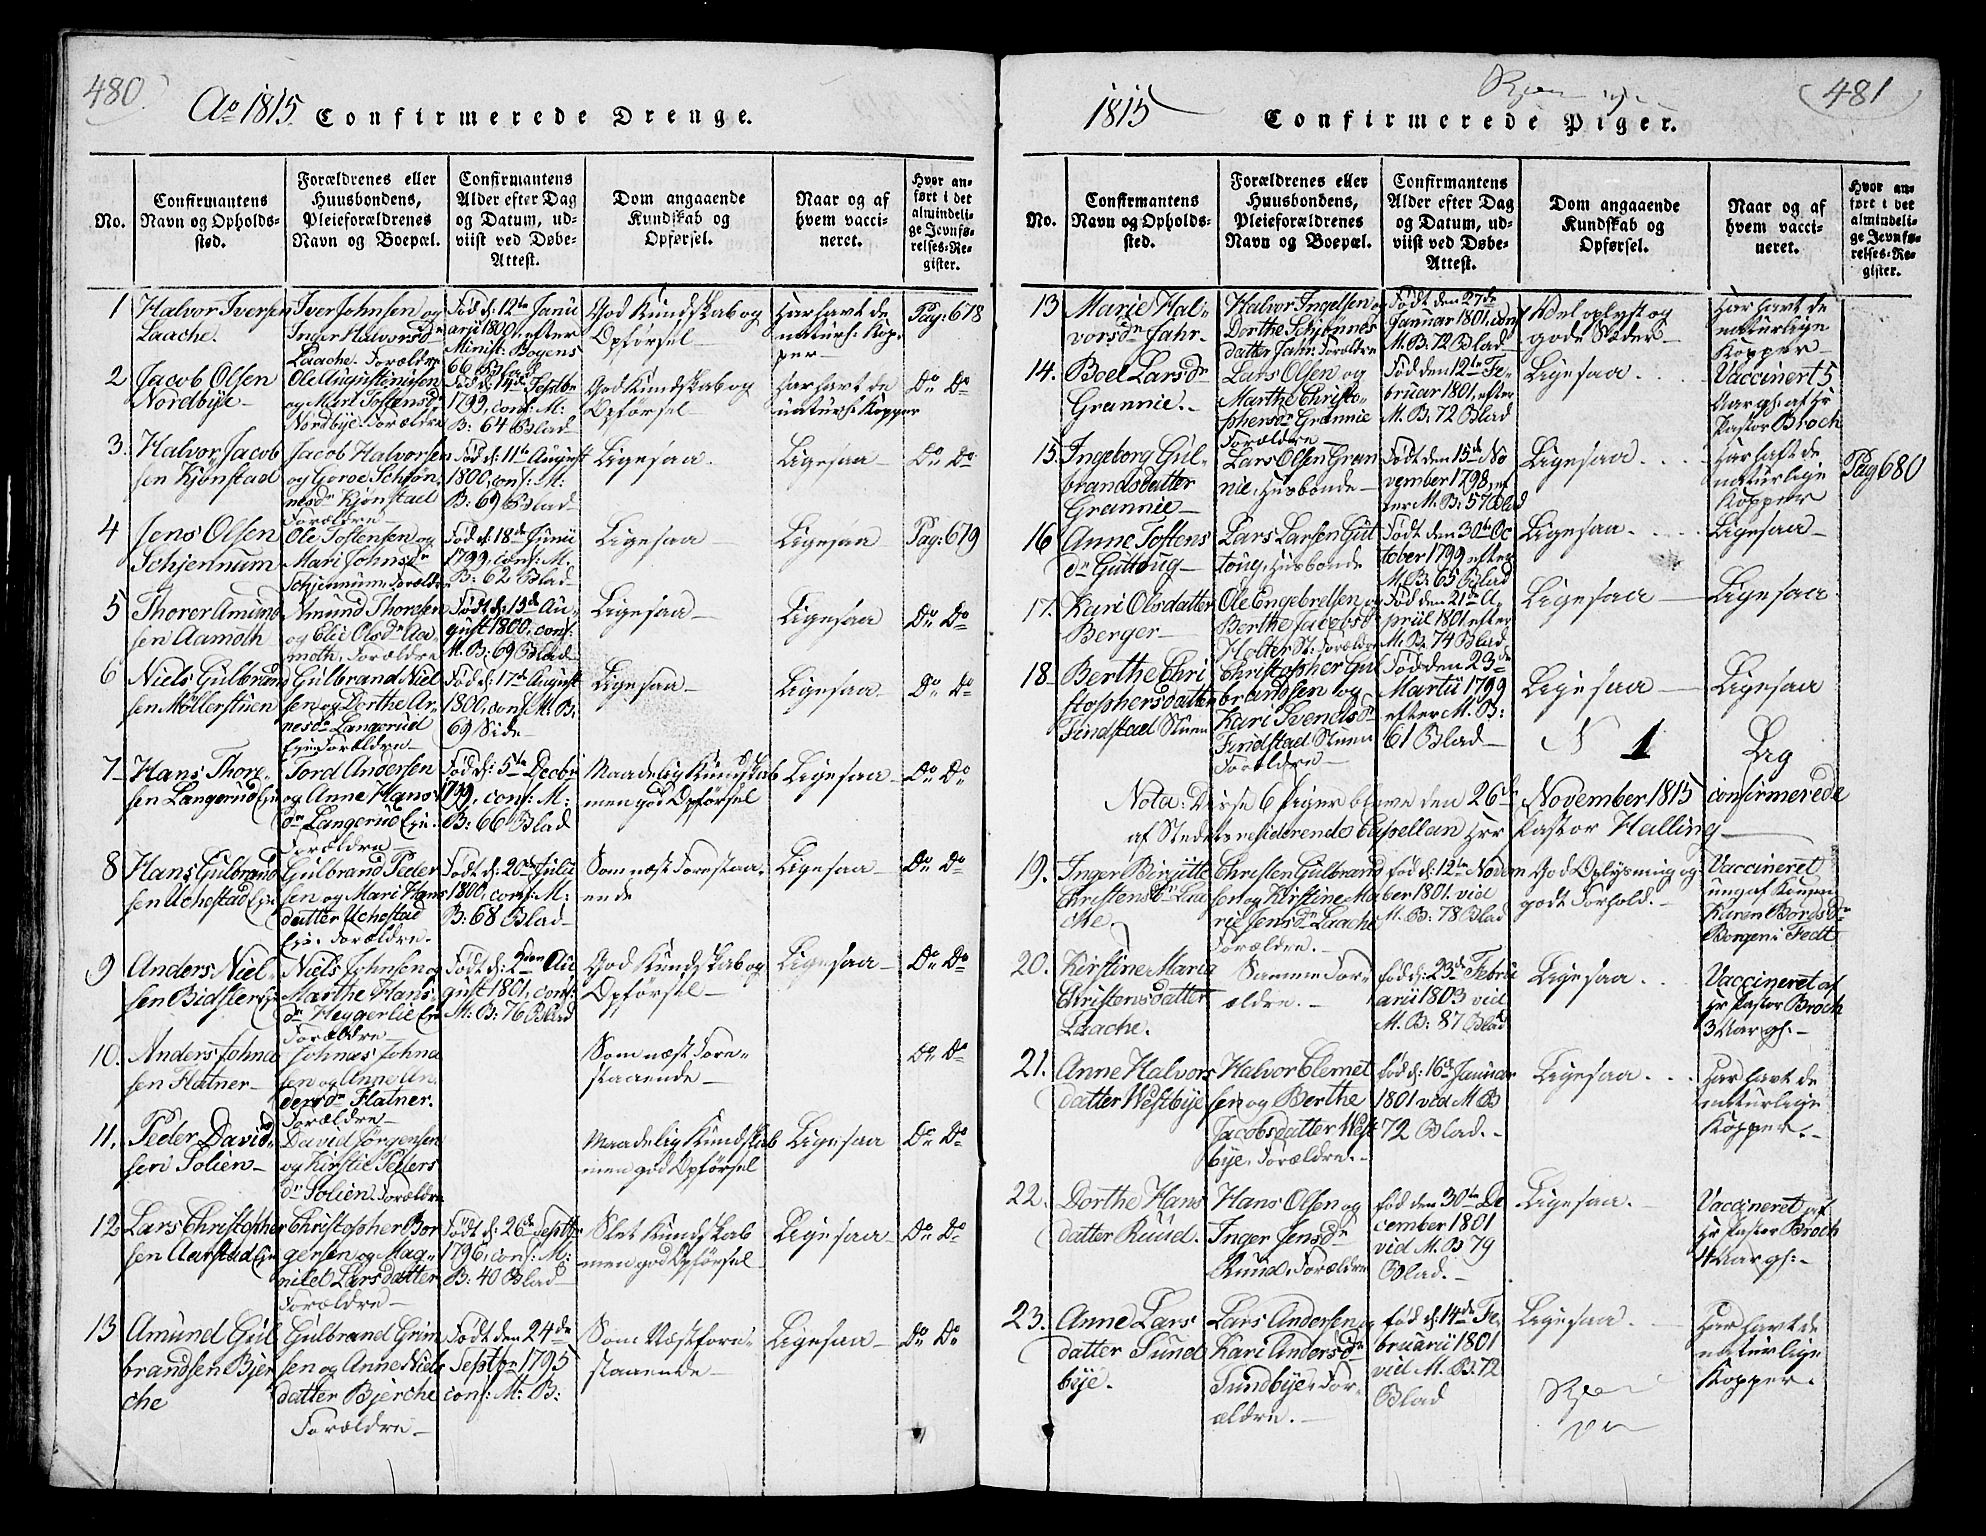 480.
Ao 1815. Confirmerede Drenge.
No.
Confirmantens
Navn og Opholds-
sted.
Forældrenes eller
Huusbondens,
Pleieforældrenes
Navn og Boepæl.
Confirmantens
Alder efter Dag
og Datum, ud-
viist ved Døbe-
Attest.
Dom angaaende
Kundskab og
Opførsel.
Naar og af
hvem vacci-
neret.
Hvor an-
ført i det
almindeli-
ge Jevnfø-
relses-Re-
gister.
1
Halvor Iversen
Laache.
Iver Johnsen og
Inger Halvorsdr
Laache. Forældre
Fød d: 12te Janu
arii 1800, efter
Minist: Bogens
66 Blad
God Kundskab og
Opførsel
Har havt de
naturl: Kop-
per
Pag: 678
2
Jacob Olsen
Nordbye
Ole Augustinuson
og Mari Toftensdr
Nordbye. Forældre
Fød d: 14de Septbr
1799, conf: M:
B: 64 Blad
God Kundskab og
Opførsel
Har havt de
naturl: Kopper
Do Do
3.
Halvor Jacob
sen Kjønstad
Jacob Halvorsen
og Goroe Schiøn
nesdr Kjønstad
Forældre
Fød d: 11te August
1800, conf: M:
B: 69 Blad
Ligesaa.
Ligesaa
Do Do
4
Jens Olsen
Schjennum
Ole Toftensen og
Mari Johnsdr
Schjennum Forældre
Fød d: 18de Junii
1799, conf: M.
B: 62 Blad
Ligesaa
Ligesaa
Pag: 679
5
Thorer Amund
sen Aamoth
Amund Thoresen
og Elie Olsdr Aa-
moth. Forældre
Født d: 13de Au-
gust 1800, conf:
M. B: 69 Blad
Ligesaa
Ligesaa
Do Do
6
Niels Gulbrand
sen Møllerstuen
Gulbrand Niel
sen og Dorthe Ar-
nesdr Langerud
Eie Forældre
Fød d: 17de August
1800, conf M. B:
69 Side
Ligesaa
Ligesaa
Do Do
7
Hans Thore-
sen Langerud Eie
Tord Andersen
og Anne Hans
dr Langerud Eie.
Forældre
Fød d: 5te Decbr
1799, conf: M:
B: 66 Blad
Maadelig Kundskab
men god Opførsel
Ligesaa
Do Do
8
Hans Gulbrand
sen Uchestad Eie
Gulbrand Peder
sen og Mari Hans
datter Uchestad
Eie. Forældre.
Født d: 20de Julii
1800, conf: M:
B: 68 Blad
Som næst Forestaa-
ende
Ligesaa
Do Do
9
Anders Niel-
sen Bidsler Eie
Niels Johnsen og
Marthe Hans
dr Heggerlie Eie
Forældre
Født d: 2den Au
gust 1801, conf:
M: B: 76 Blad
God Kundskab og
Opførsel
Ligesaa
Do Do
10.
Anders Johna
sen Flatner
Johnas Johna
sen og Anne An
dersdr Flatner.
Forældre
Som næst Fore-
staaende
Do Do
11,
Peder David-
sen Solien
David Jørgensen
og Kirstie Peders
dr Solien Forældre
Maadelig Kundskab
men god Opførsel
Ligesaa
Do Do
12
Lars Christopher
sen Aarstad Eie
Christopher Bor
gersen og Mag-
nild Larsdatter
Forældre
Født d: 26de Septbr
1796, conf: M:
B: 40 Blad
Slet Kundskab
men god Opførsel
Ligesaa
Do Do
13
Amund Gul
brandsen Bjer
che
Gulbrand Grim
sen og Anne Niels
datter Bjerche
Forældre
Født den 24de
Septbr 1795
conf: M: B:
Som Næstfore-
staaende
Ligesaa
Do Do
481
1815 Confirmerede Piger.
No.
Confirmantens
Navn og Opholds-
sted.
Forældrenes eller
Huusbondens,
Pleieforældrenes
Navn og Boepæl.
Confirmantens
Alder efter Dag
og Datum, ud-
viist ved Døbe-
Attest.
Dom angaaende
Kundskab og
Opførsel.
Naar og af
hvem vacci-
neret.
Hvor an-
ført i det
almindeli-
ge Jevnfø-
relses-Re-
gister.
13
Marie Hal-
vorsdr Jahr.
Halvor Ingelsen og
Dorthe Schiønnes
datter Jahr. Forældre
Født den 27de
Januar 1801, conf
M. B. 72 Blad
Vel oplyst og
gode Sæder
Har havt de
naturlige
Kopper
14.
Boel Larsdr
Grønnie.
Lars Olsen og
Marthe Christo-
phersdr Grønnie
Forældre
Fød den 12te Fe-
bruar 1801, efter
M. B: 72 Blad
Ligesaa
Vaccinert 5
Aar gl: af Hr
Pastor Broch
15.
Ingeborg Gul-
brandsdatter
Grønnie
Lars Olsen Grøn
nie, Husbonde
Født den 15de No
vember 1798, ef
ter M. B: 57 Blad
Ligesaa
Har haft de
naturlige
Kopper
Pag 680
16
Anne Toftens
dr Guttoug
Lars Larsen Gut
toug, Husbonde
Født den 30te Oc
tober 1799 efter
M. B. 65 Blad
Ligesaa
Ligesaa
17.
Kari Olsdatter
Berger
Ole Engebretsen og
Berthe Jacobsdr
Holter St: Forældre
Fød den 21de A
priil 1801 efter
M. B. 74 Blad
Ligesaa
Ligesaa.
18
Berthe Chri
stophersdatter
Findstad Stuen
Christopher Gul
brandsen og
Kari Svendsdr
Findstad Stuen
Forældre
Fød den 23de
Martii 1799
efter M. B:
61 Blad
Ligesaa
Ligesaa
N 1
Lig
Nota: Disse 6 Piger bleve den 26de November 1815 confirmerede
af Stedets residerende Capellan Herr Pastor Halling
19.
Inger Birgitte
Christensdr Laa
che.
Christen Gulbrand
sen og Kirstine Ma
rie Jensdr Laache
Forældre.
fød d: 12te Novem
ber 1801. vid
M. B: 78 Blad
God Oplysning og
godt Forhold.
Vaccineret
ung af Konen
Karen Bordsdr
Borgen i Fedt
20.
Kirstine Maria
Christensdatter
Laache.
Samme For-
ældre.
fød d: 23de Febru
arii 1803 vid
M. B: 87 Blad
Ligesaa.
Vaccineret af
Hr Pastor Broch
3 Aar gl:
21.
Anne Halvors
datter Westbye
Halvor Clemet
sen og Berthe
Jacobsdatter West
bye, Forældre.
fød d: 16de Januar
1801 vid M B
72 Blad.
Ligesaa.
Har havt de
naturlige
Kopper.
22.
Dorthe Hans
datter Ruud.
Hans Olsen og
Inger Jensdr
Ruud, Forældre
fød den 30te De
cember 1801
vid M. B 79
Blad.
Ligesaa.
Vaccineret af
Hr Pastor Broch
4 Aar gl:
23.
Anne Lars
datter Sund
bye.
Lars Andersen og
Kari Andersdr
Sundbye, For-
ældre.
fød d: 14de Fe-
bruarii 1801
vid M. B. 72
Blad
Ligesaa.
Har havt de
naturlige
Kopper.